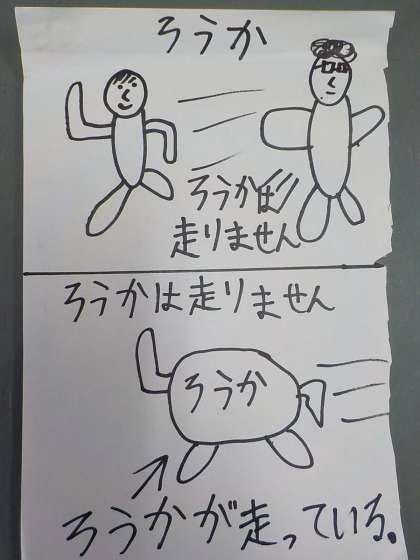 ろうか
ろうかは
走りません
ろうかは走りません
ろうか
ろうかが走っている。